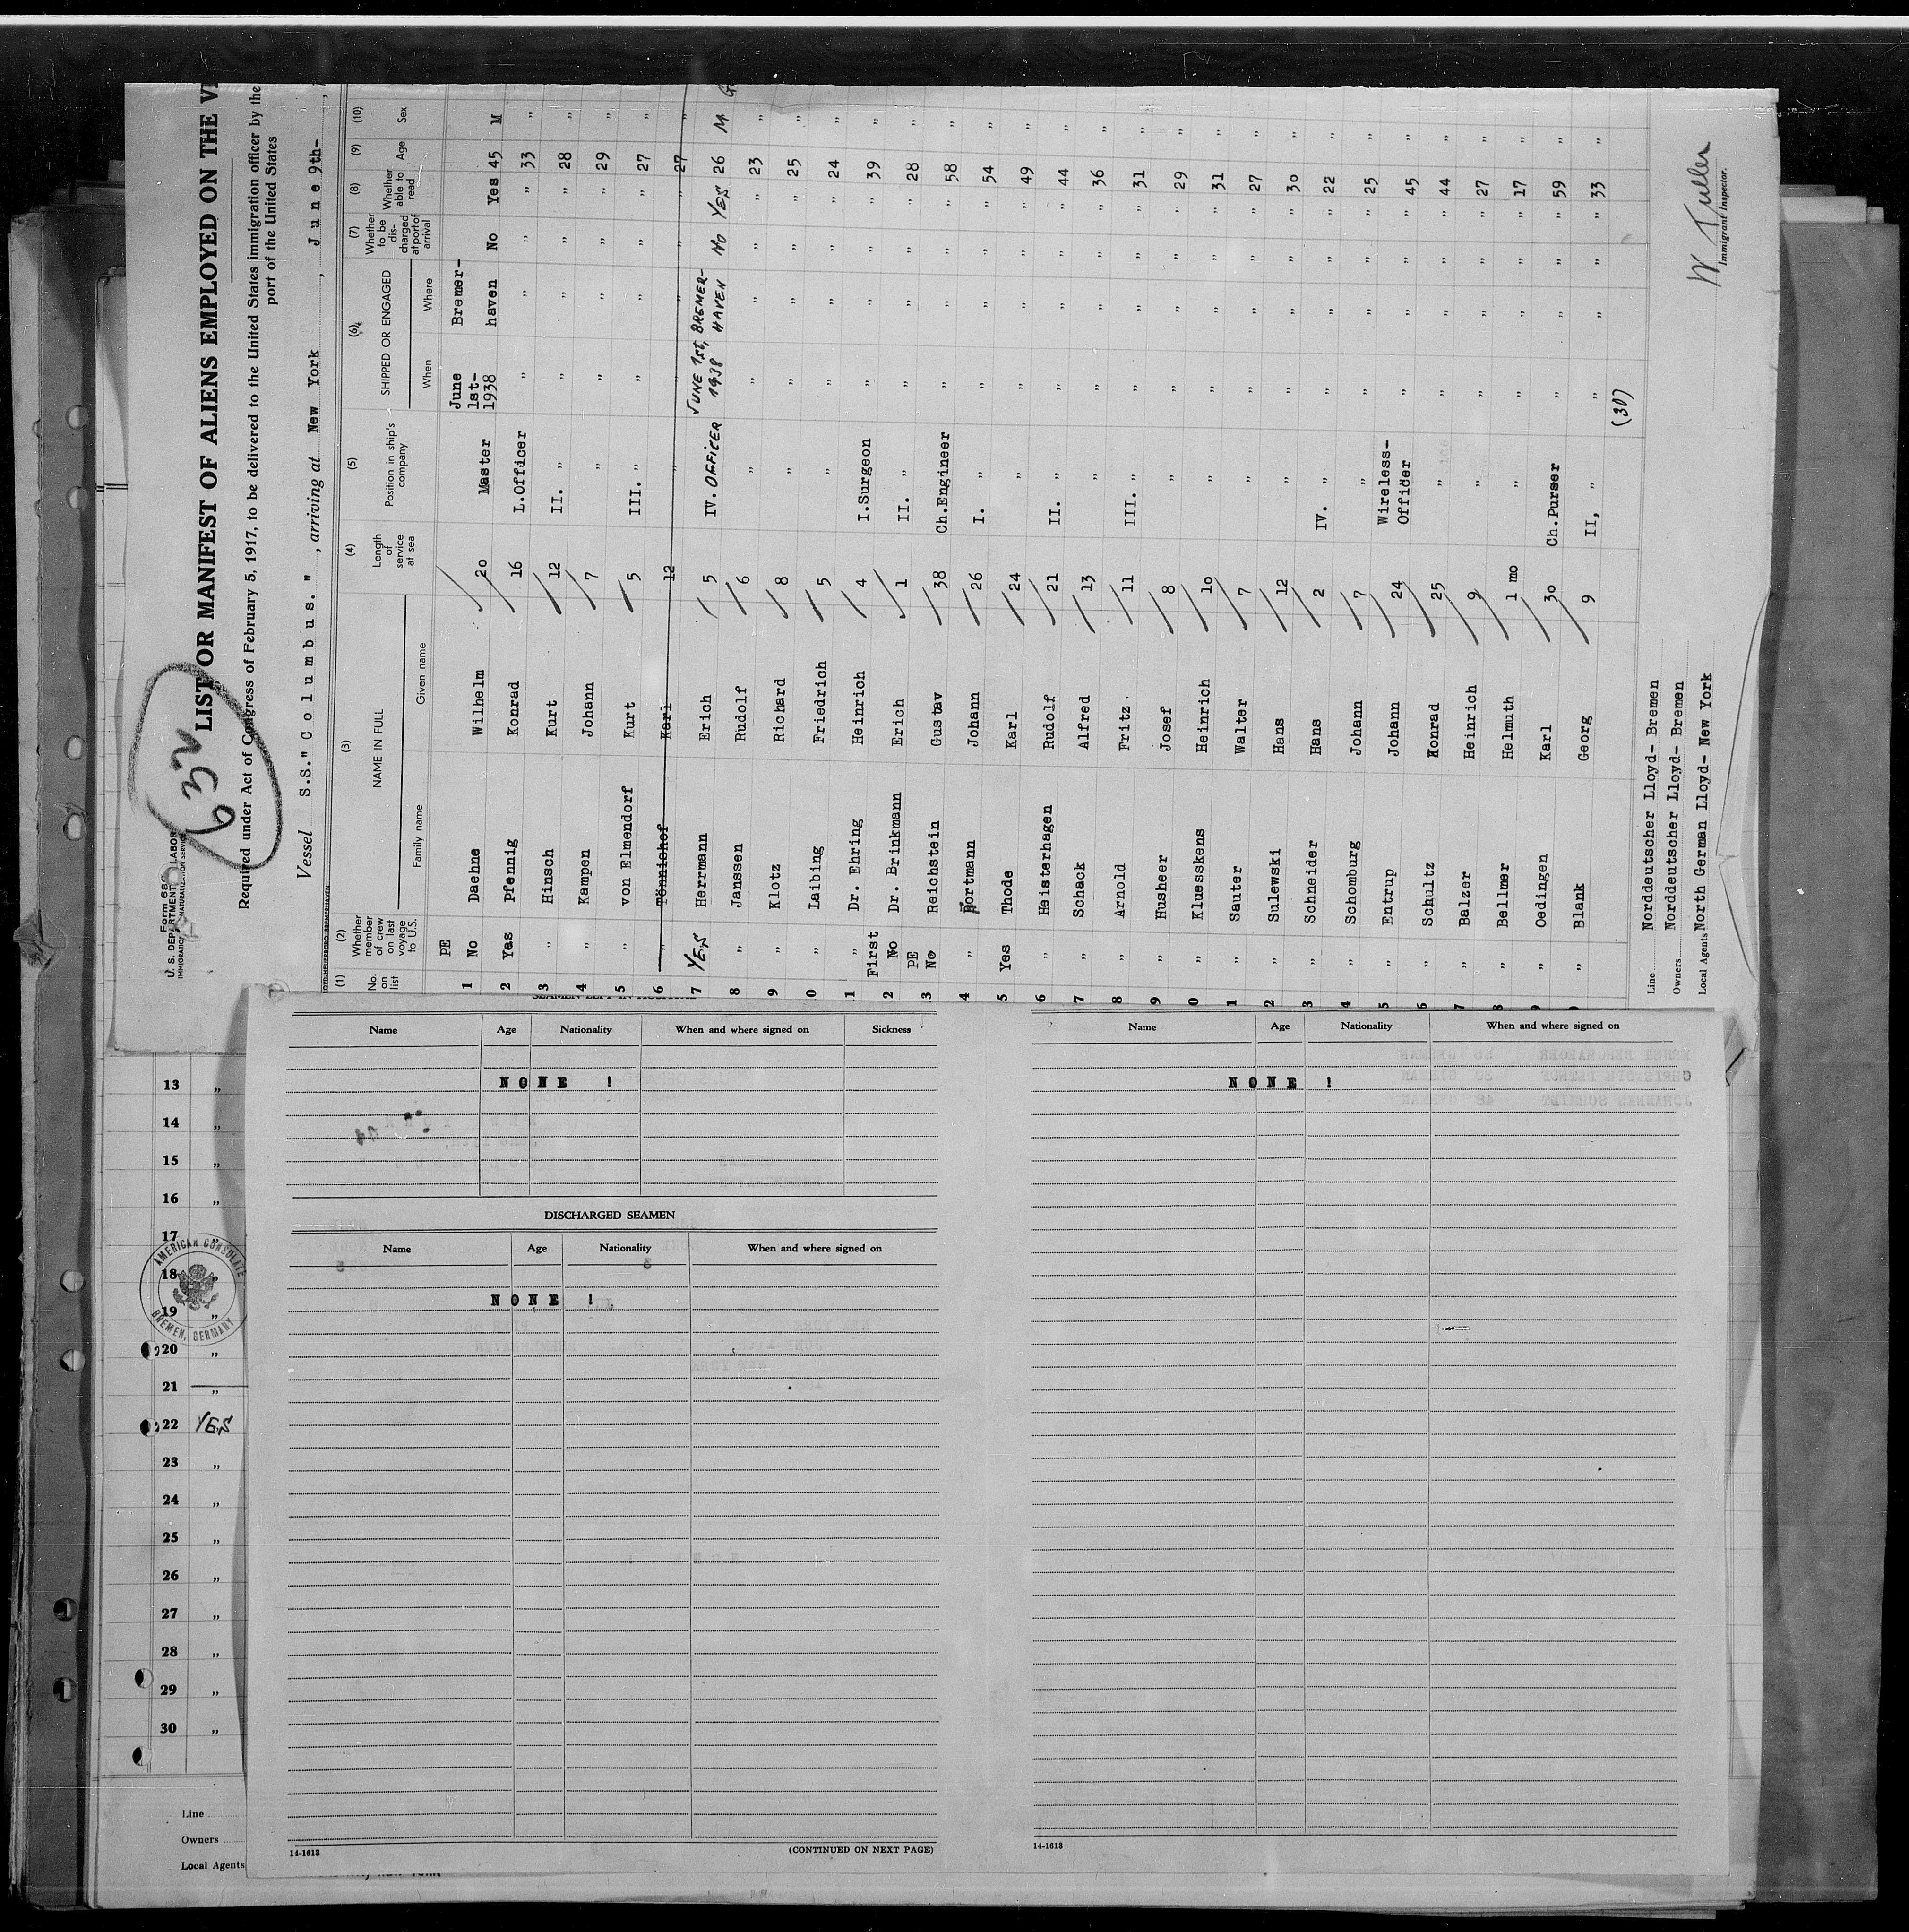 632
Form 68
U. S. DEPARTMENT LABOR
IMMIGRATION NATURALIZATION SERVICE
LIST OR MANIFEST OF ALIENS EMPLOYED ON THE
Required under Act of Congress of February 5, 1917, to be delivered to the United States immigration officer by the
port of the United States
Vessel S.S." C o l u m b u s. " , arriving at New York , J u n e 9th- ,
(1) (2) (3) (4) (5) (6) (7) (8) (9) (10)
No. on list Whether member of crew on last voyage to U.S. NAME IN FULL Length of service at sea Position in ship's company SHIPPED OR ENGAGED Whether to be dis-charged at port of arrival Whether able to read Age Sex
Family name Given name When Where
PE June 1st- Bremer-
1 No Daehne Wilhelm 20 Master 1938 haven No Yes 45 M
2 Yes Pfennig Konrad 16 L.Officer " " " " 33 "
3 " Hinsch Kurt 12 II. " " " " " 28 "
4 " Kampen Johann 7 " " " " " 29 "
5 " von Elmendorf Kurt 5 III. " " " " " 27 "
6 " Tönnishof Karl 12 " " " " " 27 "
7 YES Herrmann Erich 5 IV. OFFICER JUNE 1st, 1938 BREMER-HAVEN NO YES 26 M G
8 " Janssen Rudolf 6 " " " " " 23 "
9 " Klotz Richard 8 " " " " " 25 "
0 " Laibing Friedrich 5 " " " " " 24 "
1 " Dr. Ehring Heinrich 4 I.Surgeon " " " " 39 "
2 First No Dr. Brinkmann Erich 1 II. " " " " " 28 "
3 PE No Reichstein Gustav 38 Ch.Engineer " " " " 58 "
4 " Portmann Johann 26 I. " " " " " 54 "
5 Yes Thode Karl 24 " " " " " 49 "
6 " Heisterhagen Rudolf 21 II. " " " " " 44 "
7 " Schack Alfred 13 " " " " " 36 "
8 " Arnold Fritz 11 III. " " " " " 31 "
9 " Husheer Josef 8 " " " " " 29 "
0 " Kluesskens Heinrich 10 " " " " " 31 "
1 " Sauter Walter 7 " " " " " 27 "
2 " Sulewski Hans 12 " " " " " 30 "
3 " Schneider Hans 2 IV. " " " " " 22 "
4 " Schomburg Johann 7 " " " " " 25 "
5 " Entrup Johann 24 Wireless-Officer " " " " 45 "
6 " Schultz Konrad 25 " " " " " 44 "
7 " Balzer Heinrich 9 " " " " " 27 "
8 " Bellmer Helmuth 1 mo " " " " " 17 "
9 " Oedingen Karl 30 Ch.Purser " " " " 59 "
" Blank Georg 9 II, " " " " " 33 "
(30)
Line Norddeutscher Lloyd- Bremen
Owners Norddeutscher Lloyd- Bremen
Local Agents North German Lloyd- New York
W Fuller
Immigrant Inspector.
Name Age Nationality When and where signed on Sickness
N O N E !
DISCHARGED SEAMEN
Name Age Nationality When and where signed on
N O N E !
14-1613 (CONTINUED ON NEXT PAGE)
Name Age Nationality When and where signed on
N O N E !
14-1613
13 "
14 "
15 "
16 "
17 "
18 "
19 "
20 "
21 "
22 YES
23 "
24 "
25 "
26 "
27 "
28 "
29 "
30 "
AMERICAN CONSULATE
BREMEN, GERMANY
Line
Owners
Local Agents